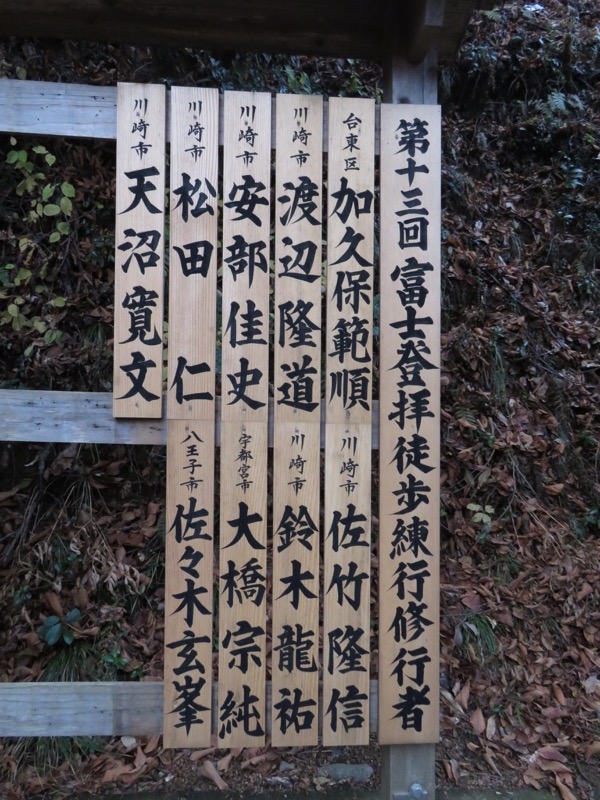 第十三回 富士登拝徒歩練行修行者
台東区 加久保範順
川崎市 渡辺隆道
川崎市 安部佳史
川崎市 松田仁
川崎市 天沼寛文
川崎市 佐竹隆信
川崎市 鈴木龍祐
宇都宮市 大橋宗純
八王子市 佐々木玄峯